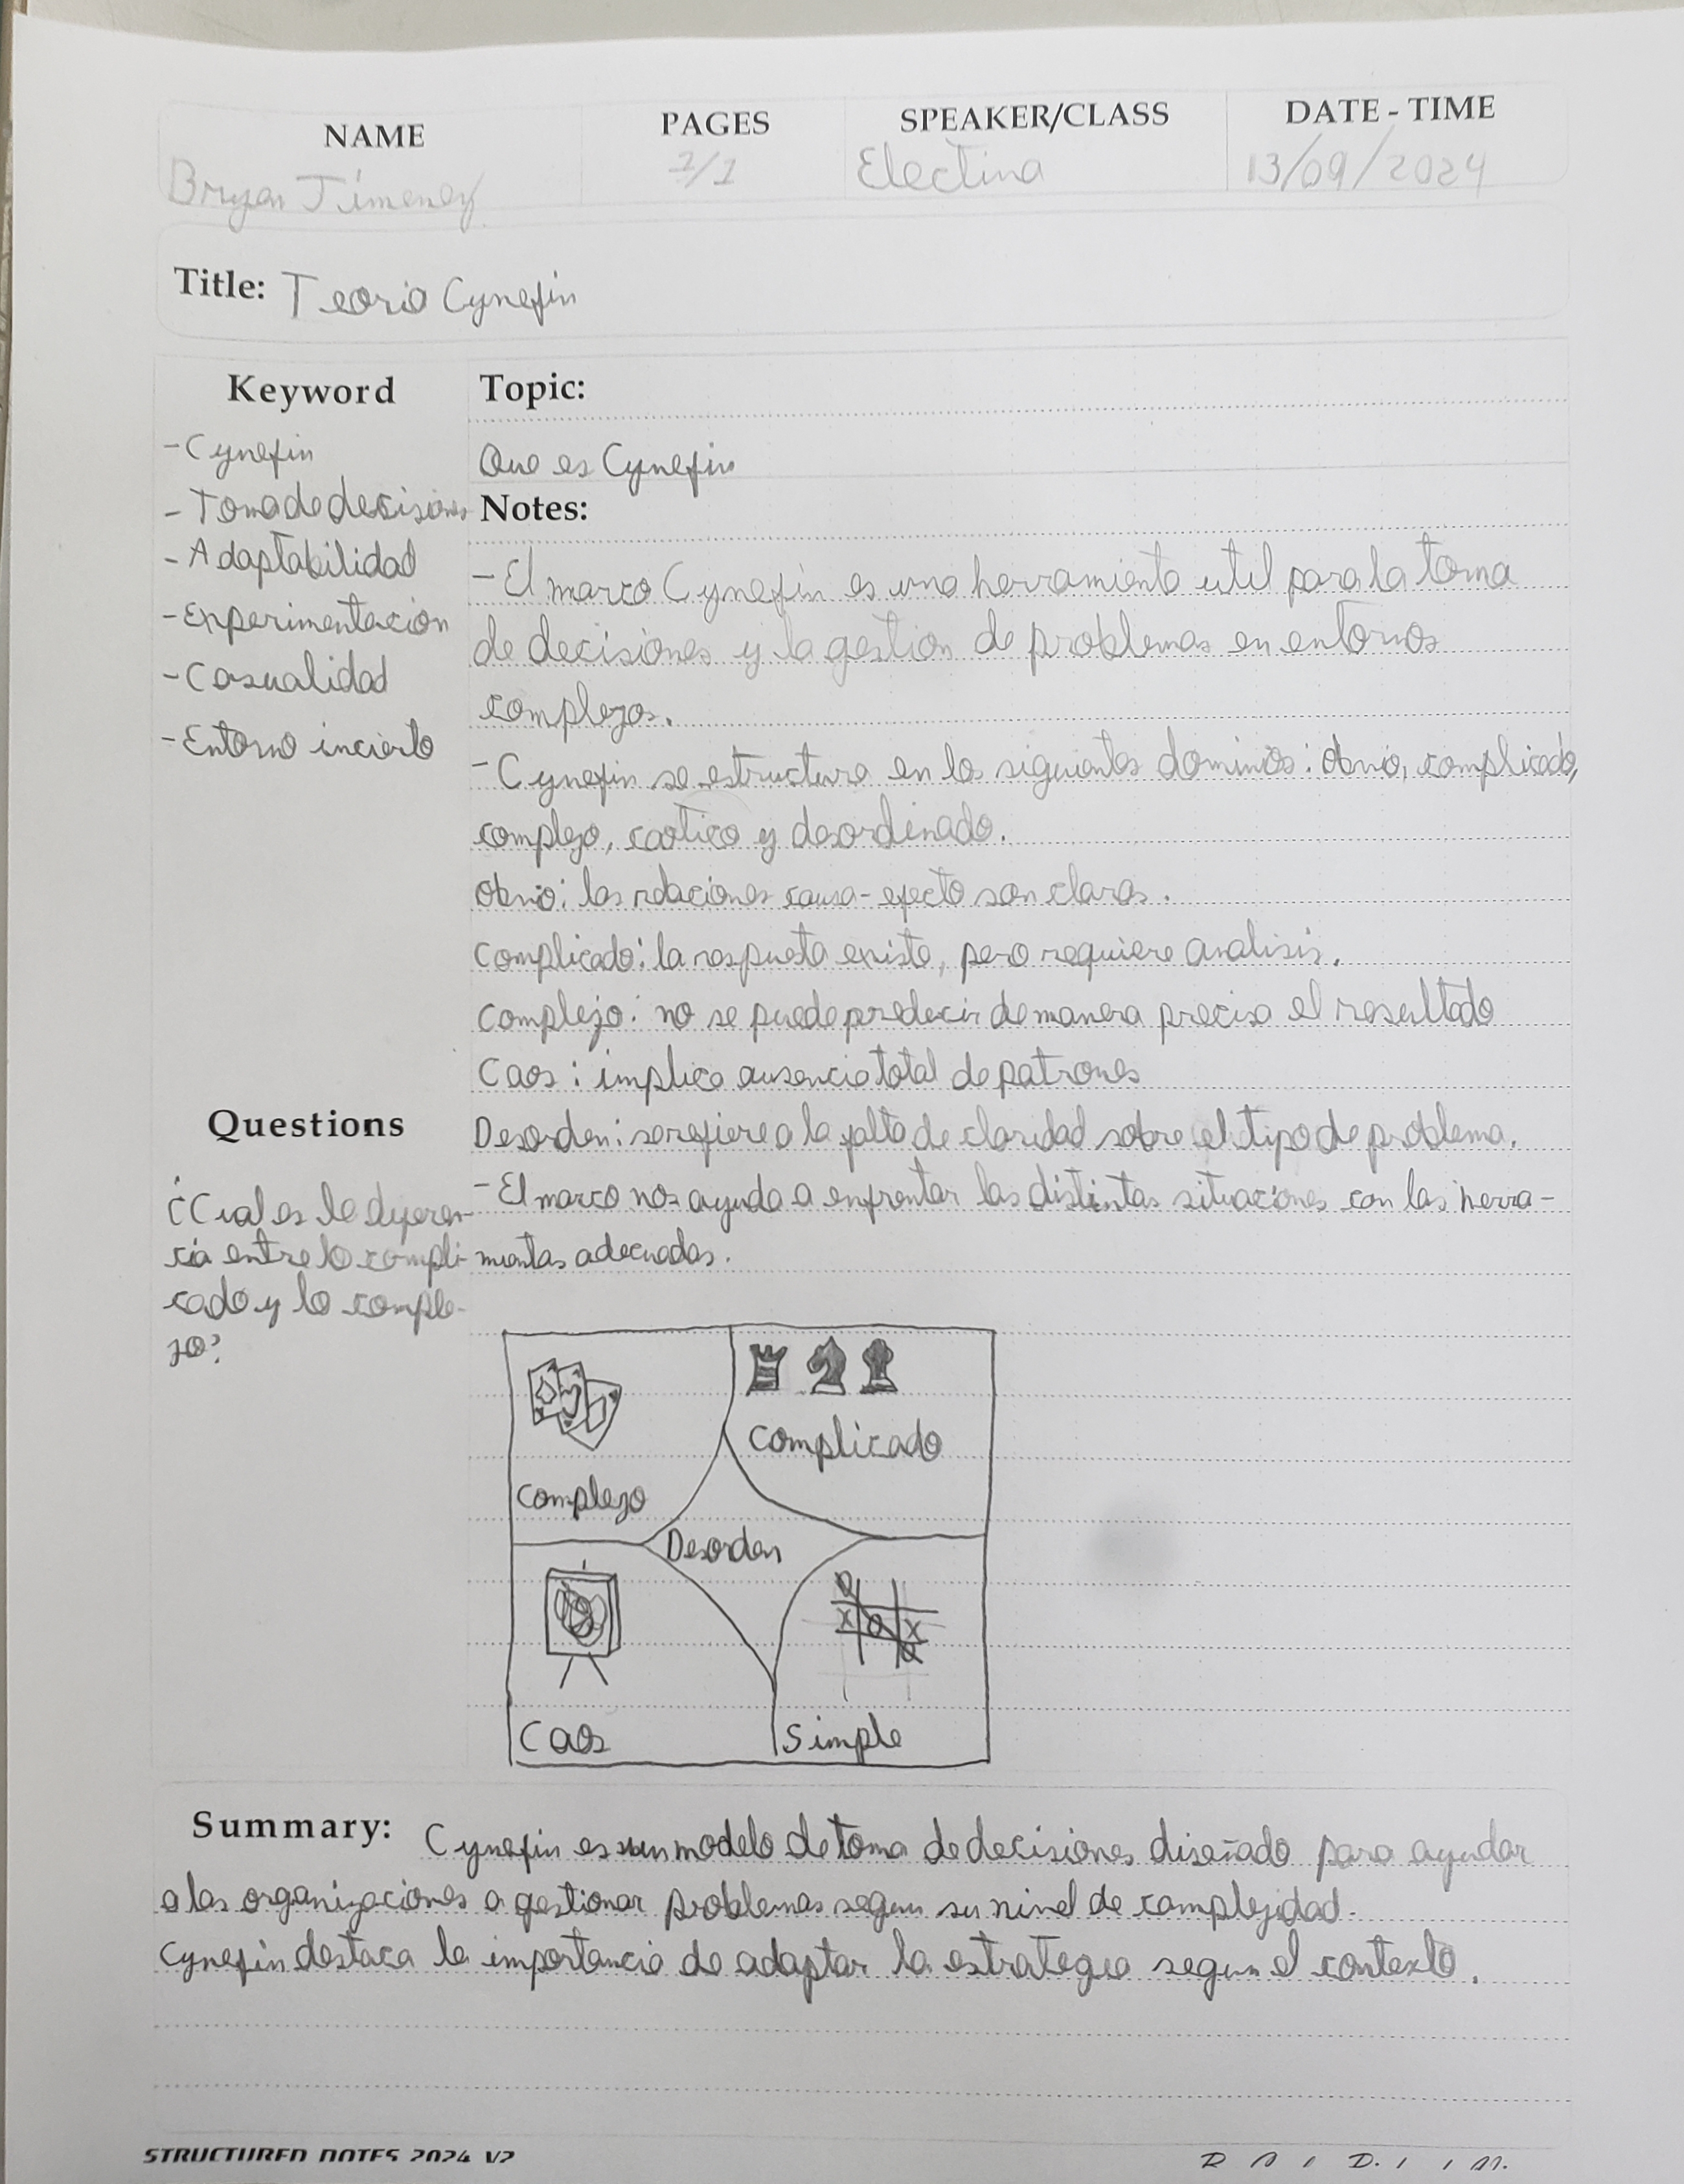 NAME
PAGES
SPEAKER/CLASS
DATE - TIME
Bryan Jimenez
1/1
Electiva
13/09/2024
Title: Teoria Cynefin
Keyword
- Cynefin
- Toma de decisiones
- Adaptabilidad
- Experimentación
- Casualidad
- Entorno incierto
Topic:
Que es Cynefin
Notes:
- El marco Cynefin es una herramienta util para la toma
de decisiones y la gestion de problemas en entornos
complejos.
- Cynefin se estructura en los siguientes dominios: obvio, complicado,
complejo, caotico y desordenado.
Obvio: las relaciones causa-efecto son claras.
Complicado: la respuesta existe, pero requiere analisis.
Complejo: no se puede predecir de manera precisa el resultado
Caos: implica ausencia total de patrones
Desorden: se refiere a la falta de claridad sobre el tipo de problema.
- El marco nos ayuda a enfrentar las distintas situaciones con las herra-
mientas adecuadas.
Questions
¿Cual es la diferen-
cia entre lo compli-
cado y lo comple-
jo?
Complicado
Complejo
Desorden
O
X O X
O
Caos
Simple
Summary: Cynefin es un modelo de toma de decisiones diseñado para ayudar
a las organizaciones a gestionar problemas segun su nivel de complejidad.
Cynefin destaca la importancia de adaptar la estrategia segun el contexto.
STRUCTURED NOTES 2024 V2